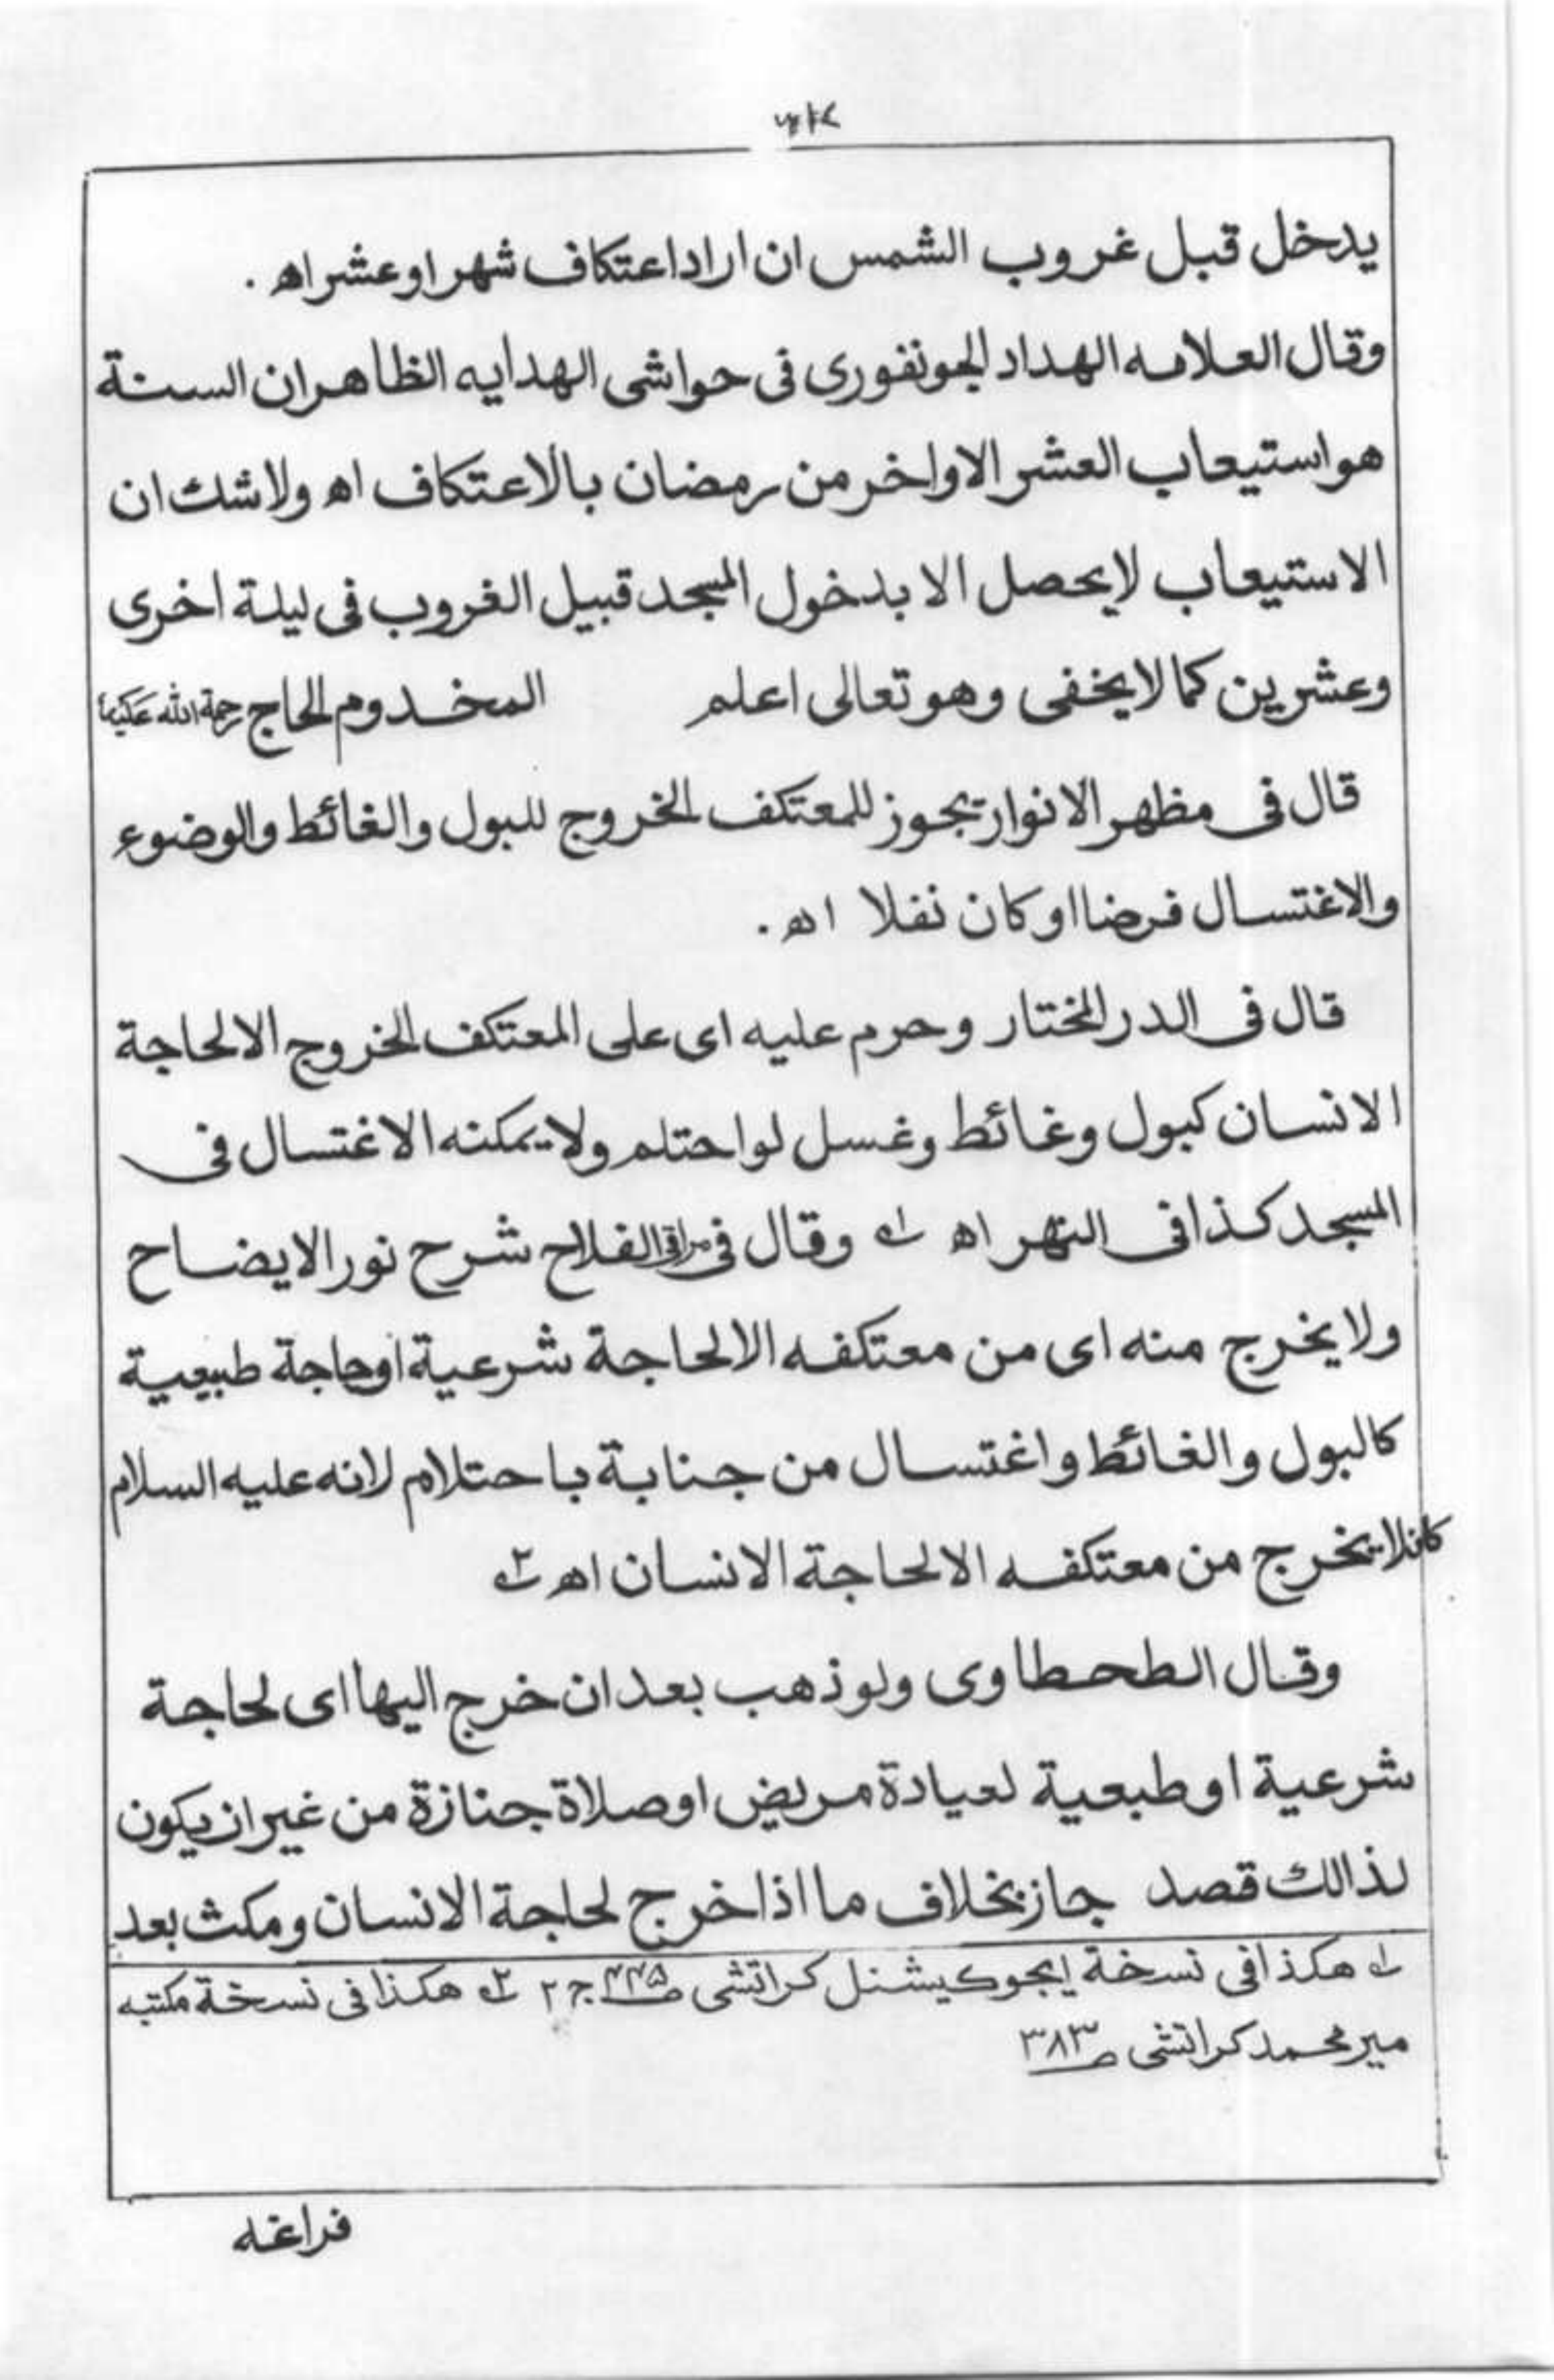 يدخل قبل غروب الشمس ان اراد اعتكاف شهر او عشر اه .
وقال العلامه الهداد الجونفوری فی حواشی الهدایه الظاهر ان السنة
هو استيعاب العشر الاواخر من رمضان بالاعتكاف اه ولا شك ان
الاستيعاب لا يحصل الا بدخول المسجد قبيل الغروب فی ليلة اخری
وعشرين كما لا يخفی وهو تعالی اعلم المخدوم الحاج رحمة الله عليه
قال فی مظهر الانوار يجوز للمعتكف الخروج للبول والغائط والوضوء
والاغتسال فرضا او كان نفلا اه .
قال فی الدر المختار وحرم عليه ای علی المعتكف الخروج الا لحاجة
الانسان كبول وغائط وغسل لو احتلم ولا يمكنه الاغتسال فی
المسجد كذا فی النهر اه ؁۱ وقال فی مراقی الفلاح شرح نور الايضاح
ولا يخرج منه ای من معتكفه الا لحاجة شرعية او حاجة طبيعية
كالبول والغائط واغتسال من جنابة باحتلام لانه عليه السلام
كان لا يخرج من معتكفه الا لحاجة الانسان اه ؁۲
وقال الطحطاوی ولو ذهب بعد ان خرج اليها ای لحاجة
شرعية او طبعية لعيادة مريض او صلاة جنازة من غير ان يكون
لذالك قصد جاز بخلاف ما اذا خرج لحاجة الانسان ومكث بعد
؁۱ هكذا فی نسخة ايجوكيشنل كراتشی ص ۴۴۵ ج ۲ ؁۲ هكذا فی نسخة مكتبه
مير محمد كراتشی ص ۳۸۳
فراغه